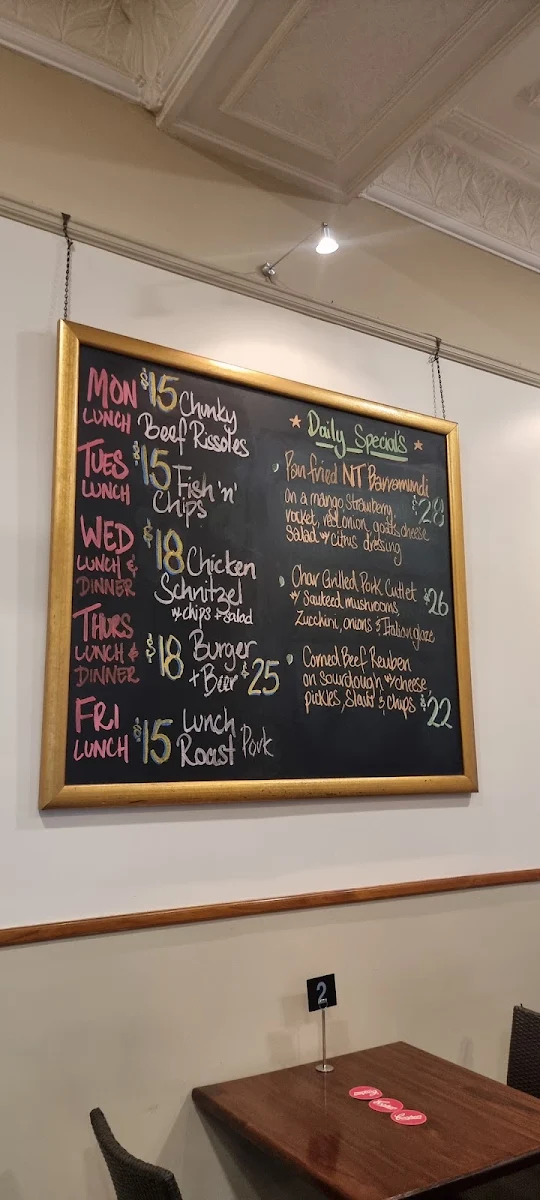 MON $15 Chunky
LUNCH Beef Rissoles
TUES $15 Fish 'n'
LUNCH Chips
WED $18 Chicken
LUNCH & Schnitzel
DINNER w chips + salad
THURS $18 Burger
LUNCH & + Beer $25
DINNER
FRI $15 Lunch
LUNCH Roast Pork
Daily Specials
Pan fried NT Barramundi
on a mango strawberry $28
rocket, red onion, goats cheese
salad w citrus dressing
Char Grilled Pork Cutlet $26
w Sauteed mushrooms,
Zucchini, onions & Italian glaze
Corned Beef Reuben
on sourdough w cheese,
pickles, slaw & chips $22
2